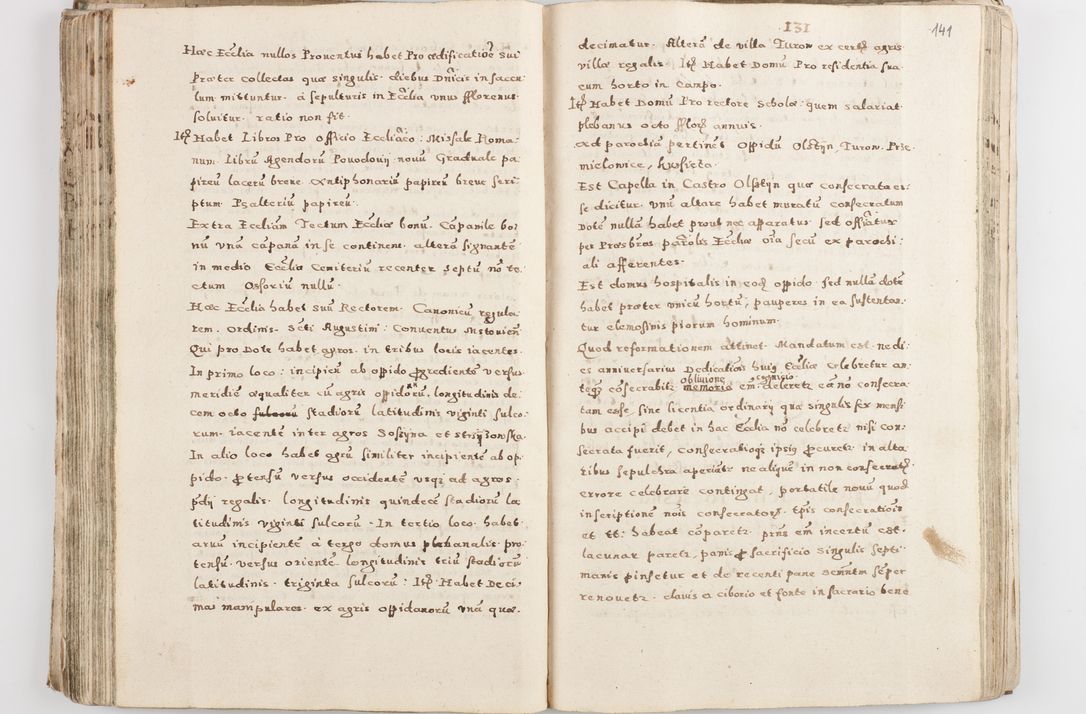 Hæc Ecclia nullos Prouentus habet Pro ædificatioē sui
Præter collectas quæ singulis diebus Dnicis in saccu
lum mittuntur. à sepulturis in Ecclia vnus fflorenus
soluitur. ratio non fit.
Itȝ Habet Libros Pro Officio Eccliāco: Missale Roma
num. Librū Agendorū Pouodouij nouū Graduale pa
pireū lacerū breue Antiphonariū papireū breue scri
ptum Psalteriū papireū.
Extra Eccliam Tectum Eccliæ bonū. Cāpanile bo
nū vnā cāpanā in se continens, alterā signantē
in medio Eccliæ Cemiteriū recenter septū nō te
ctum Ossoriū nullū.
Hæc Ecclia habet suū Rectorem. Canonicū regula
rem. Ordinis. Scti Augustini: Conuentus Mstouien
Qui pro Dote habet agros. in tribus locis iacentes.
In primo loco: incipien ab oppido progrediente versus
meridiē æqualiter cū agris oppidorū. longitudinis de,
cem octo stadiorū latitudinis viginti sulco,
rum. iacentē inter agros Soszyna et
In alio loco habet agrū similiter incipientē ab op,
pido. protensū versus occidentē vsqȝ ad agros:
pdij regalis. longitudinis quindecē stadiorū la
titudinis viginti sulcorū. In tertio loco. habet
aruū incipientē à tergo domus plebanalis pro,
tensū. versus orientē longitudinis triū stadiorū
latitudinis. triginta sulcorū: Itȝ Habet Deci
mā manipulares. ex agris oppidanorū vnā quæ.
131
141
decimatur. Alterā de villa Turow ex certis agris
villæ regalis. Itȝ Habet Domū Pro residentia sua
cum horto in campo.
Itȝ Habet Domū Pro rectore Scholæ: quem salariat
plebanus octo fflorȝ annuis.
Ad parochiā pertinēt Oppidū Olsztyn, Turow. Prze
mielowice, Kusieta.
Est Capella in Castro Olsztyn quæ consecrata es,
se dicitur. vnū altare habet muratū consecratum
Dotē nullā habet prout nec apparatus sed offiātur
per Præsbros pārolis Eccliæ oīa secū ex parochi:
ali afferentes.
Est domus hospitalis in eodȝ oppido sed nullā dotē
habet præter vnicū hortū, pauperes in ea sustentan,
tur elemosinis piorum hominum.
Quod reformationem attinet. Mandatum est. ne di,
es anniuersarius Dedicationis huiq Eccliæ celebretur an,
teqȝ cōsecrabitȝ memoria em: deleretȝ eā nō consecra,
oblivione cognitio
tam esse, sine licentia ordinarij quæ singulis sex mensi
bus accipi debet in hac Ecclia nō celebretȝ nisi con:
secrata fuerit, consecratioqȝ ipsiq procuretȝ in alta
ribus sepulchra aperiātȝ ne aliquē in non consecratȝ
errore celebrare contingat, portatile nouū quod
inscriptionē nōis consecratorȝ. tpīs consecratiōis
et tt: habeat cōparetȝ. prns em incertū est.
lacunar paretȝ, panis pro sacrificio singulis septi
manis pinsetur et de recenti pane semper
renouetȝ. clauis a ciborio et fonte in sacrario bene